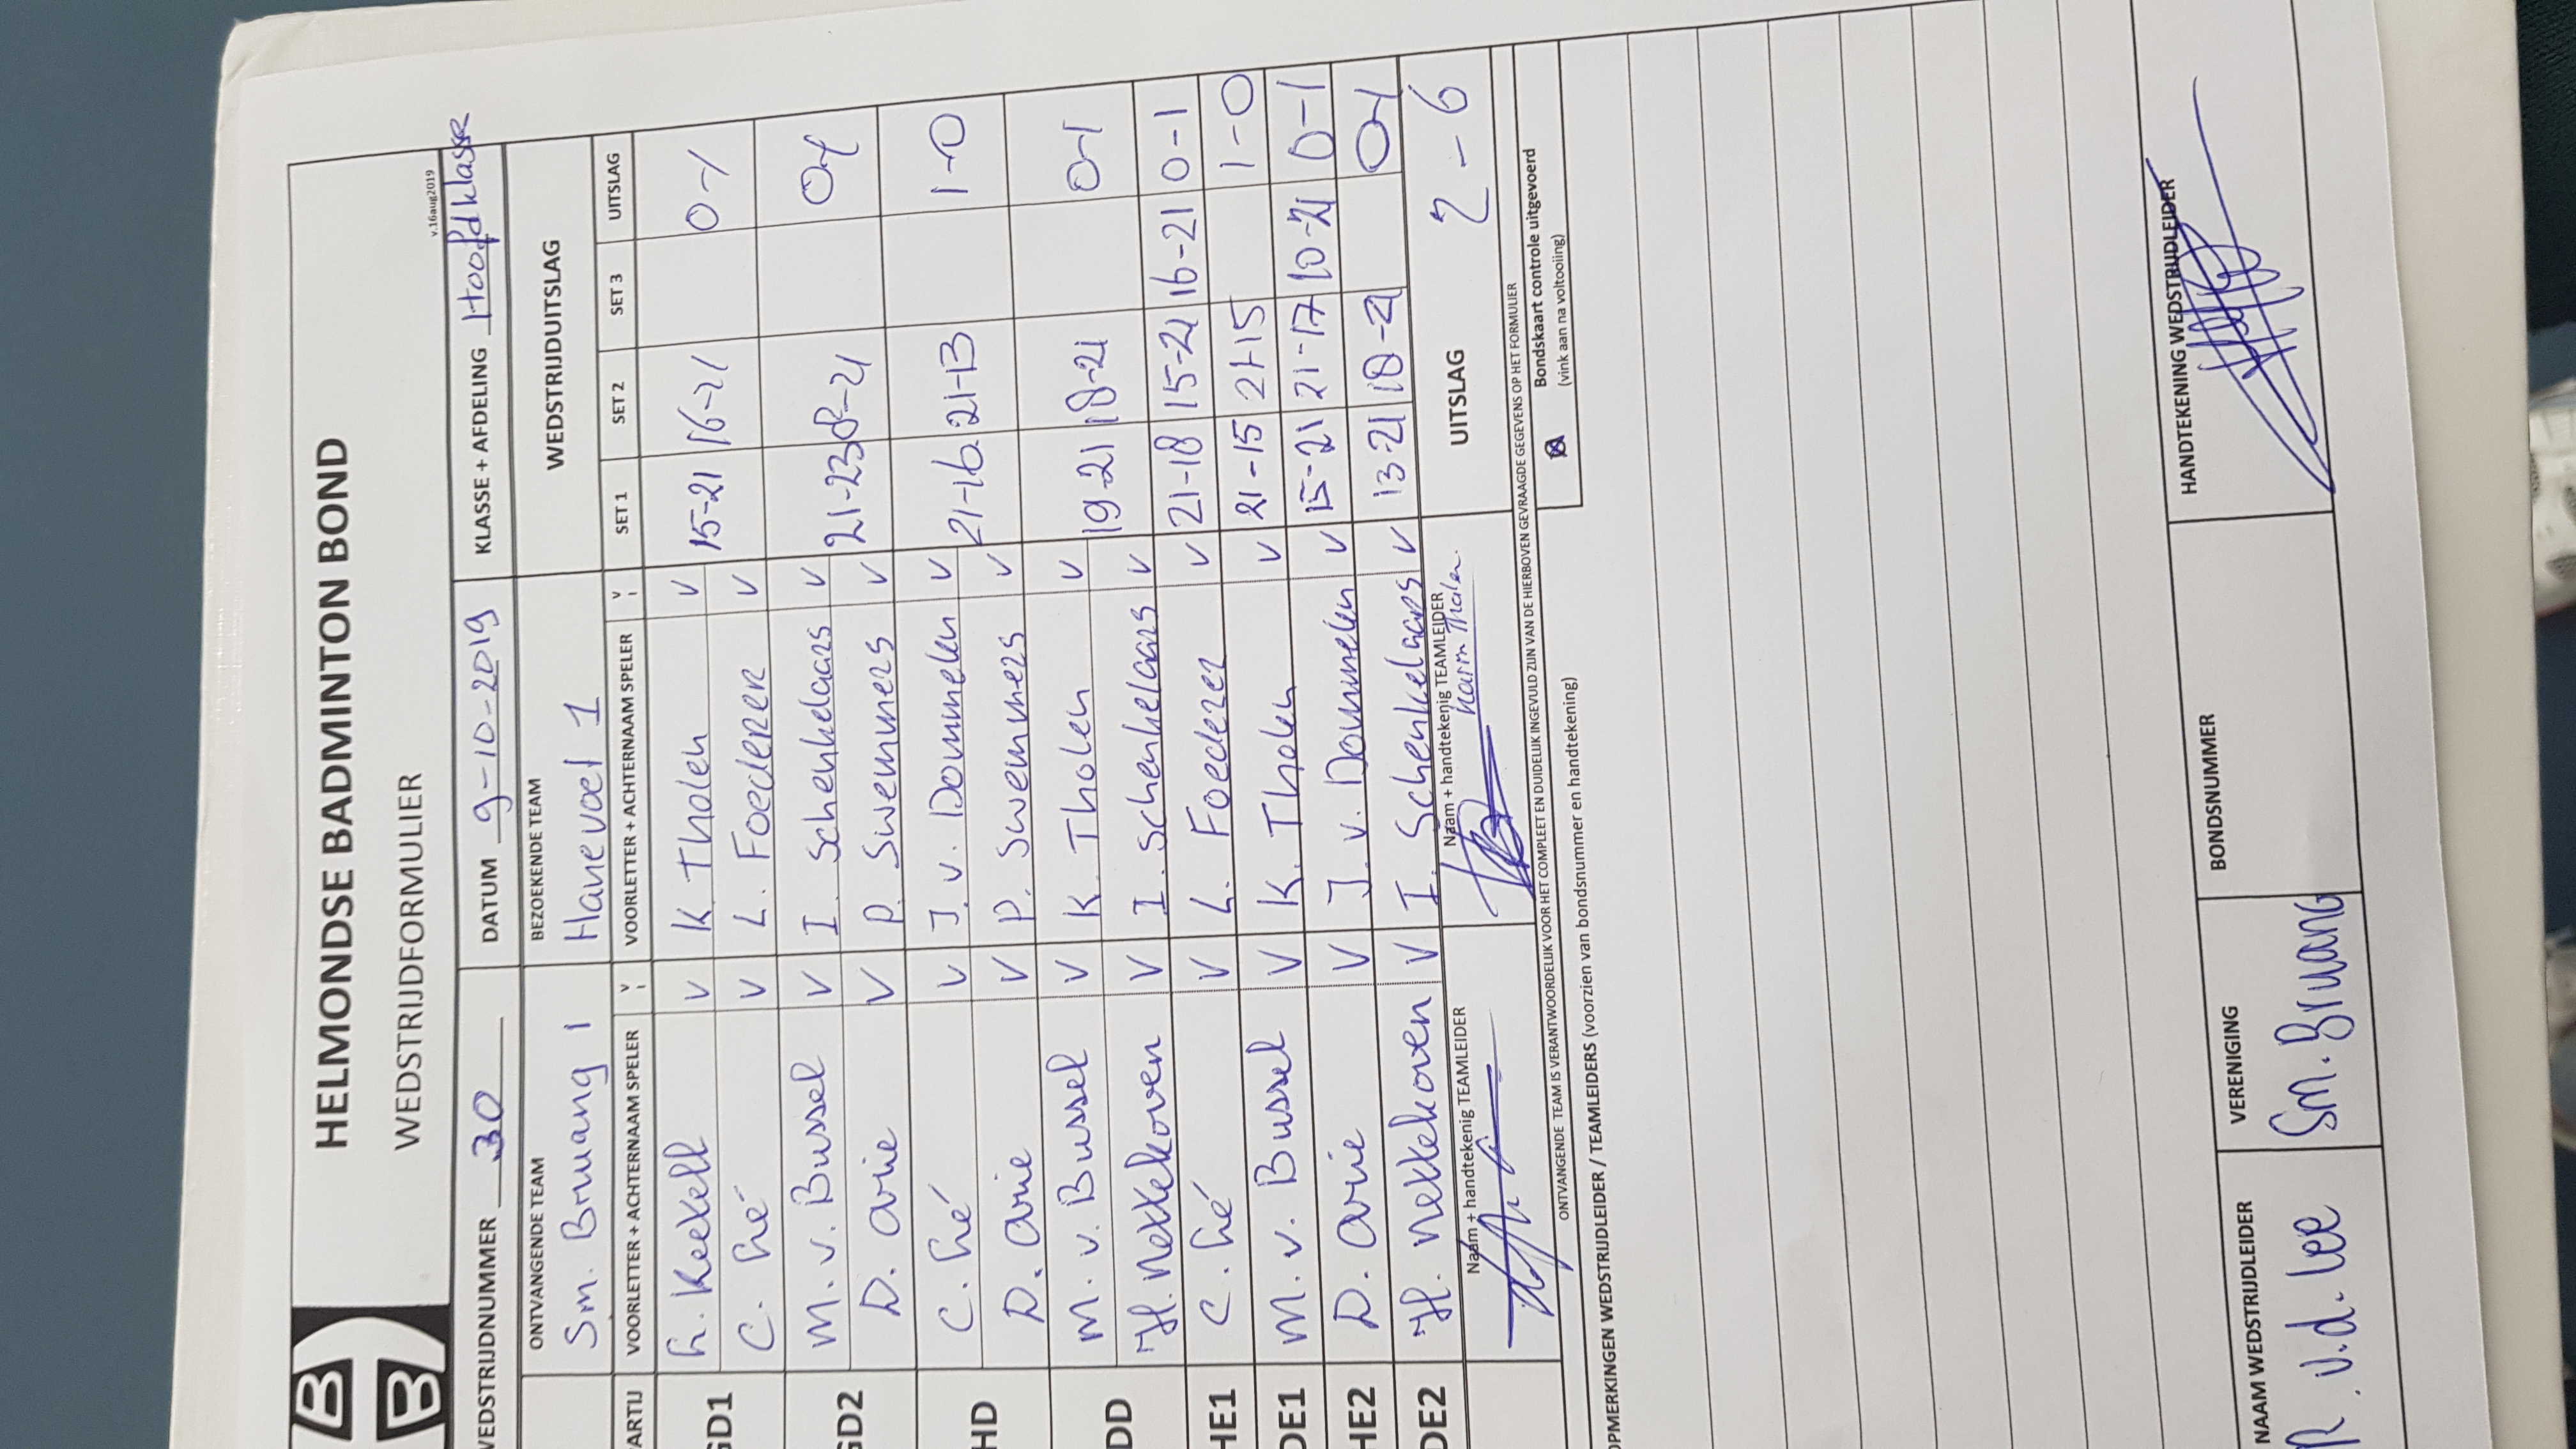 HELMONDSE BADMINTON BOND
WEDSTRIJDFORMULIER
v.16aug2019
B
B
WEDSTRIJDNUMMER 30 DATUM 9-10-2019 KLASSE + AFDELING Hoofdklasse
ONTVANGENDE TEAM BEZOEKENDE TEAM WEDSTRIJDUITSLAG
Sm. Bruuang 1 Hanevoet 1
PARTIJ VOORLETTER + ACHTERNAAM SPELER V VOORLETTER + ACHTERNAAM SPELER V SET 1 SET 2 SET 3 UITSLAG
GD1 V K Tholen V 15-21 16-21 0-1
C. hé V L. Foederer V
GD2 M. v. Bussel V I. Schenkelaars V 21-23 08-21 0-1
D. Arie V P. Swemmers V
HD C. hé V J. v. Dommelen V 21-16 21-13 1-0
D. Arie V P. Swemmers V
DD M. v. Bussel V K. Tholen V 19-21 18-21 0-1
H. Nekkekoven V I. Schenkelaars V
HE1 C. hé V L. Foederer V 21-18 15-21 16-21 0-1
DE1 M. v. Bussel V K. Tholen V 21-15 21-15 1-0
HE2 D. Arie V J. v. Dommelen V 15-21 21-17 10-21 0-1
DE2 H. Nekkekoven V I. Schenkelaars V 13-21 18-21 0-1
Naam + handtekenig TEAMLEIDER Naam + handtekenig TEAMLEIDER UITSLAG 2-6
Karin Tholen
ONTVANGENDE TEAM IS VERANTWOORDELIJK VOOR HET COMPLEET EN DUIDELIJK INGEVULD ZIJN VAN DE HIERBOVEN GEVRAAGDE GEGEVENS OP HET FORMULIER
Bondskaart controle uitgevoerd
(vink aan na voltooiing)
OPMERKINGEN WEDSTRIJDLEIDER / TEAMLEIDERS (voorzien van bondsnummer en handtekening)
NAAM WEDSTRIJDLEIDER VERENIGING BONDSNUMMER HANDTEKENING WEDSTRIJDLEIDER
R. v.d. Lee Sm. Bruuang